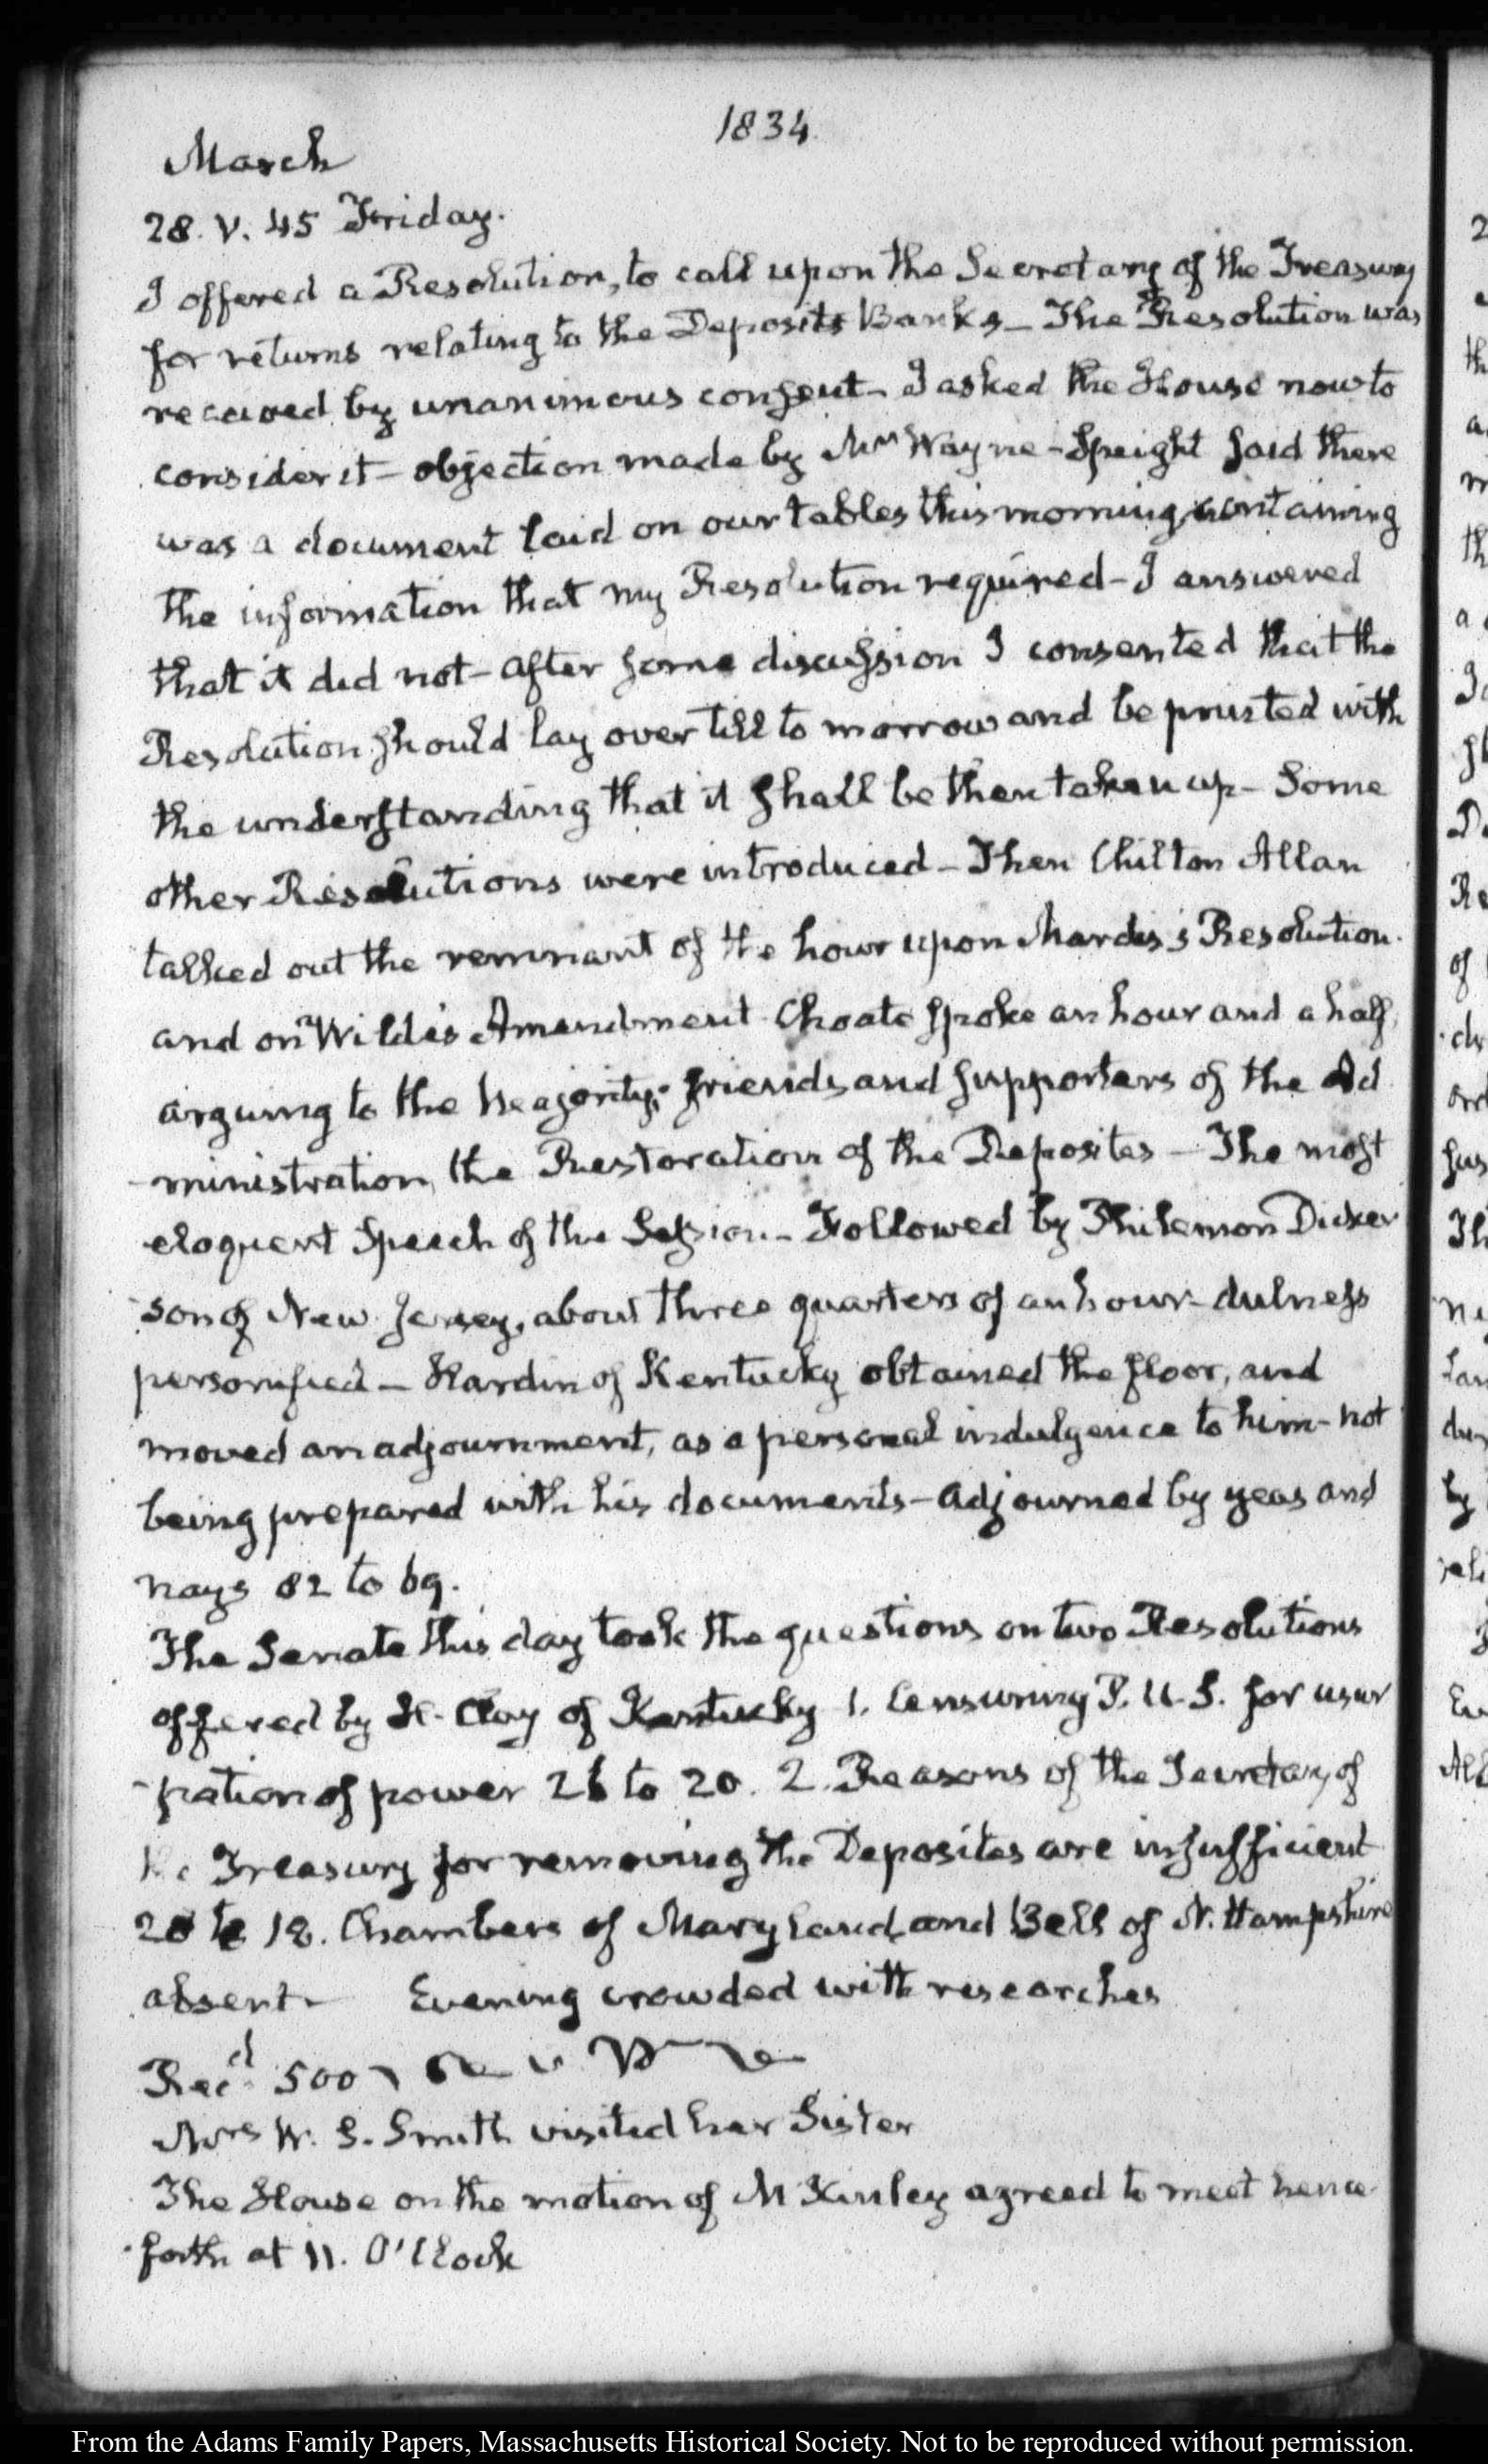 1834
March
28. V. 45 Friday.
I offered a Resolution, to call upon the Secretary of the Treasury
for returns relating to the Deposits Banks — The Resolution was
received by unanimous consent — I asked the House now to
consider it — objection made by Mr Wayne — Speight said there
was a document laid on our tables this morning containing
the information that my Resolution required — I answered
that it did not — after some discussion I consented that the
Resolution should lay over till to morrow and be printed with
the understanding that it shall be then taken up — Some
other Resolutions were introduced — Then Chilton Allan
talked out the remnant of the hour upon Mardis's Resolution.
and on Wilde's Amendment Choate spoke an hour and a half,
arguing to the majority, friends and supporters of the Ad
ministration, the Restoration of the Deposites — The most
eloquent Speech of the Session — Followed by Philemon Dicker
son of New Jersey, about three quarters of an hour — dulness
personified — Hardin of Kentucky obtained the floor, and
moved an adjournment, as a personal indulgence to him — not
being prepared with his documents — adjourned by yeas and
nays 82 to 69.
The Senate this day took the questions on two Resolutions
offered by H. Clay of Kentucky 1. Censuring P. U. S. for usur
pation of power 26 to 20. 2. Reasons of the Secretary of
the Treasury for removing the Deposites are insufficient
28 to 18. Chambers of Maryland and Bell of N. Hampshire
absent — Evening crowded with researches
Recd 500
Mrs W. S. Smith visited her Sister
The House on the motion of McKinley agreed to meet hence
forth at 11. O'Clock
From the Adams Family Papers, Massachusetts Historical Society. Not to be reproduced without permission.